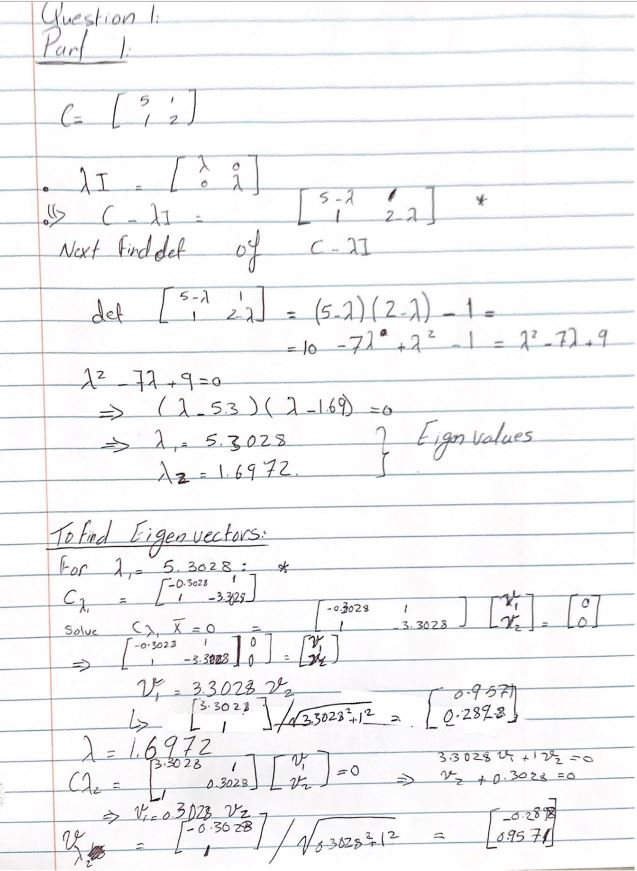 Question 1:
Part 1:
C = [ 5 1 ; 1 2 ]
• λI = [ λ 0 ; 0 λ ]
⇒ C - λI = [ 5-λ 1 ; 1 2-λ ] *
Next find det of C - λI
det [ 5-λ 1 ; 1 2-λ ] = (5-λ)(2-λ) - 1 =
= 10 - 7λ + λ² - 1 = λ² - 7λ + 9
λ² - 7λ + 9 = 0
⇒ (λ - 5.3)(λ - 1.69) = 0
⇒ λ₁ = 5.3028 } Eigen values
λ₂ = 1.6972.
To find Eigen vectors:
For λ₁ = 5.3028: *
Cλ₁ = [ -0.3028 1 ; 1 -3.3028 ]
Solve Cλ₁ x̄ = 0 = [ -0.3028 1 ; 1 -3.3028 ] [ v₁ ; v₂ ] = [ 0 ; 0 ]
⇒ [ -0.3023 1 | 0 ; 1 -3.3028 | 0 ] = [ v₁ ; v₂ ]
v₁ = 3.3028 v₂
↳ [ 3.3028 ; 1 ] / √3.3028²+1² = [ 0.957 ; 0.2898 ]
λ = 1.6972
Cλ₂ = [ 3.3028 1 ; 1 0.3028 ] [ v₁ ; v₂ ] = 0 ⇒ 3.3028 v₁ + 1v₂ = 0
v₂ + 0.3028 = 0
⇒ v₁ = 0.3028 v₂
v λ₂ = [ -0.3028 ; 1 ] / √0.3028²+1² = [ -0.2898 ; 0.9571 ]